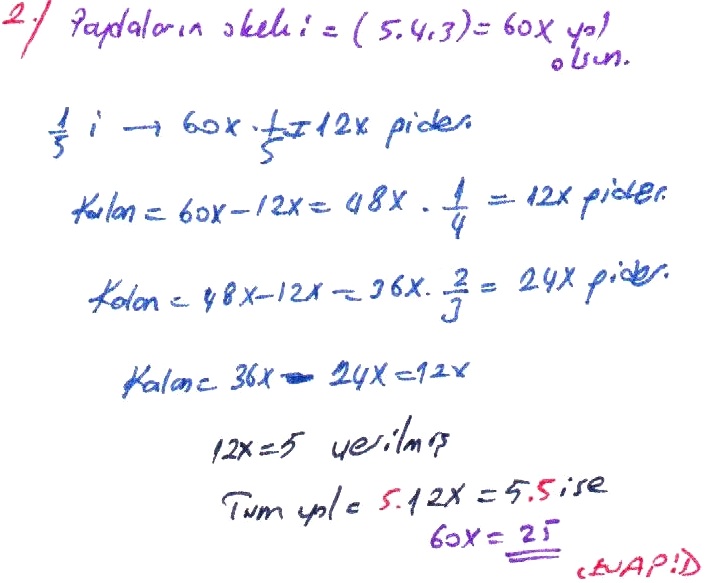 2./ Paydaların okeki = (5.4.3) = 60x yol
olsun.
1/5 i → 60x . 1/5 = 12x gider.
Kalan = 60x - 12x = 48x . 1/4 = 12x gider.
Kalan = 48x - 12x = 36x . 2/3 = 24x gider.
Kalan = 36x - 24x = 12x
12x = 5 verilmiş
Tüm yol = 5.12x = 5.5 ise
60x = 25
CEVAP:D